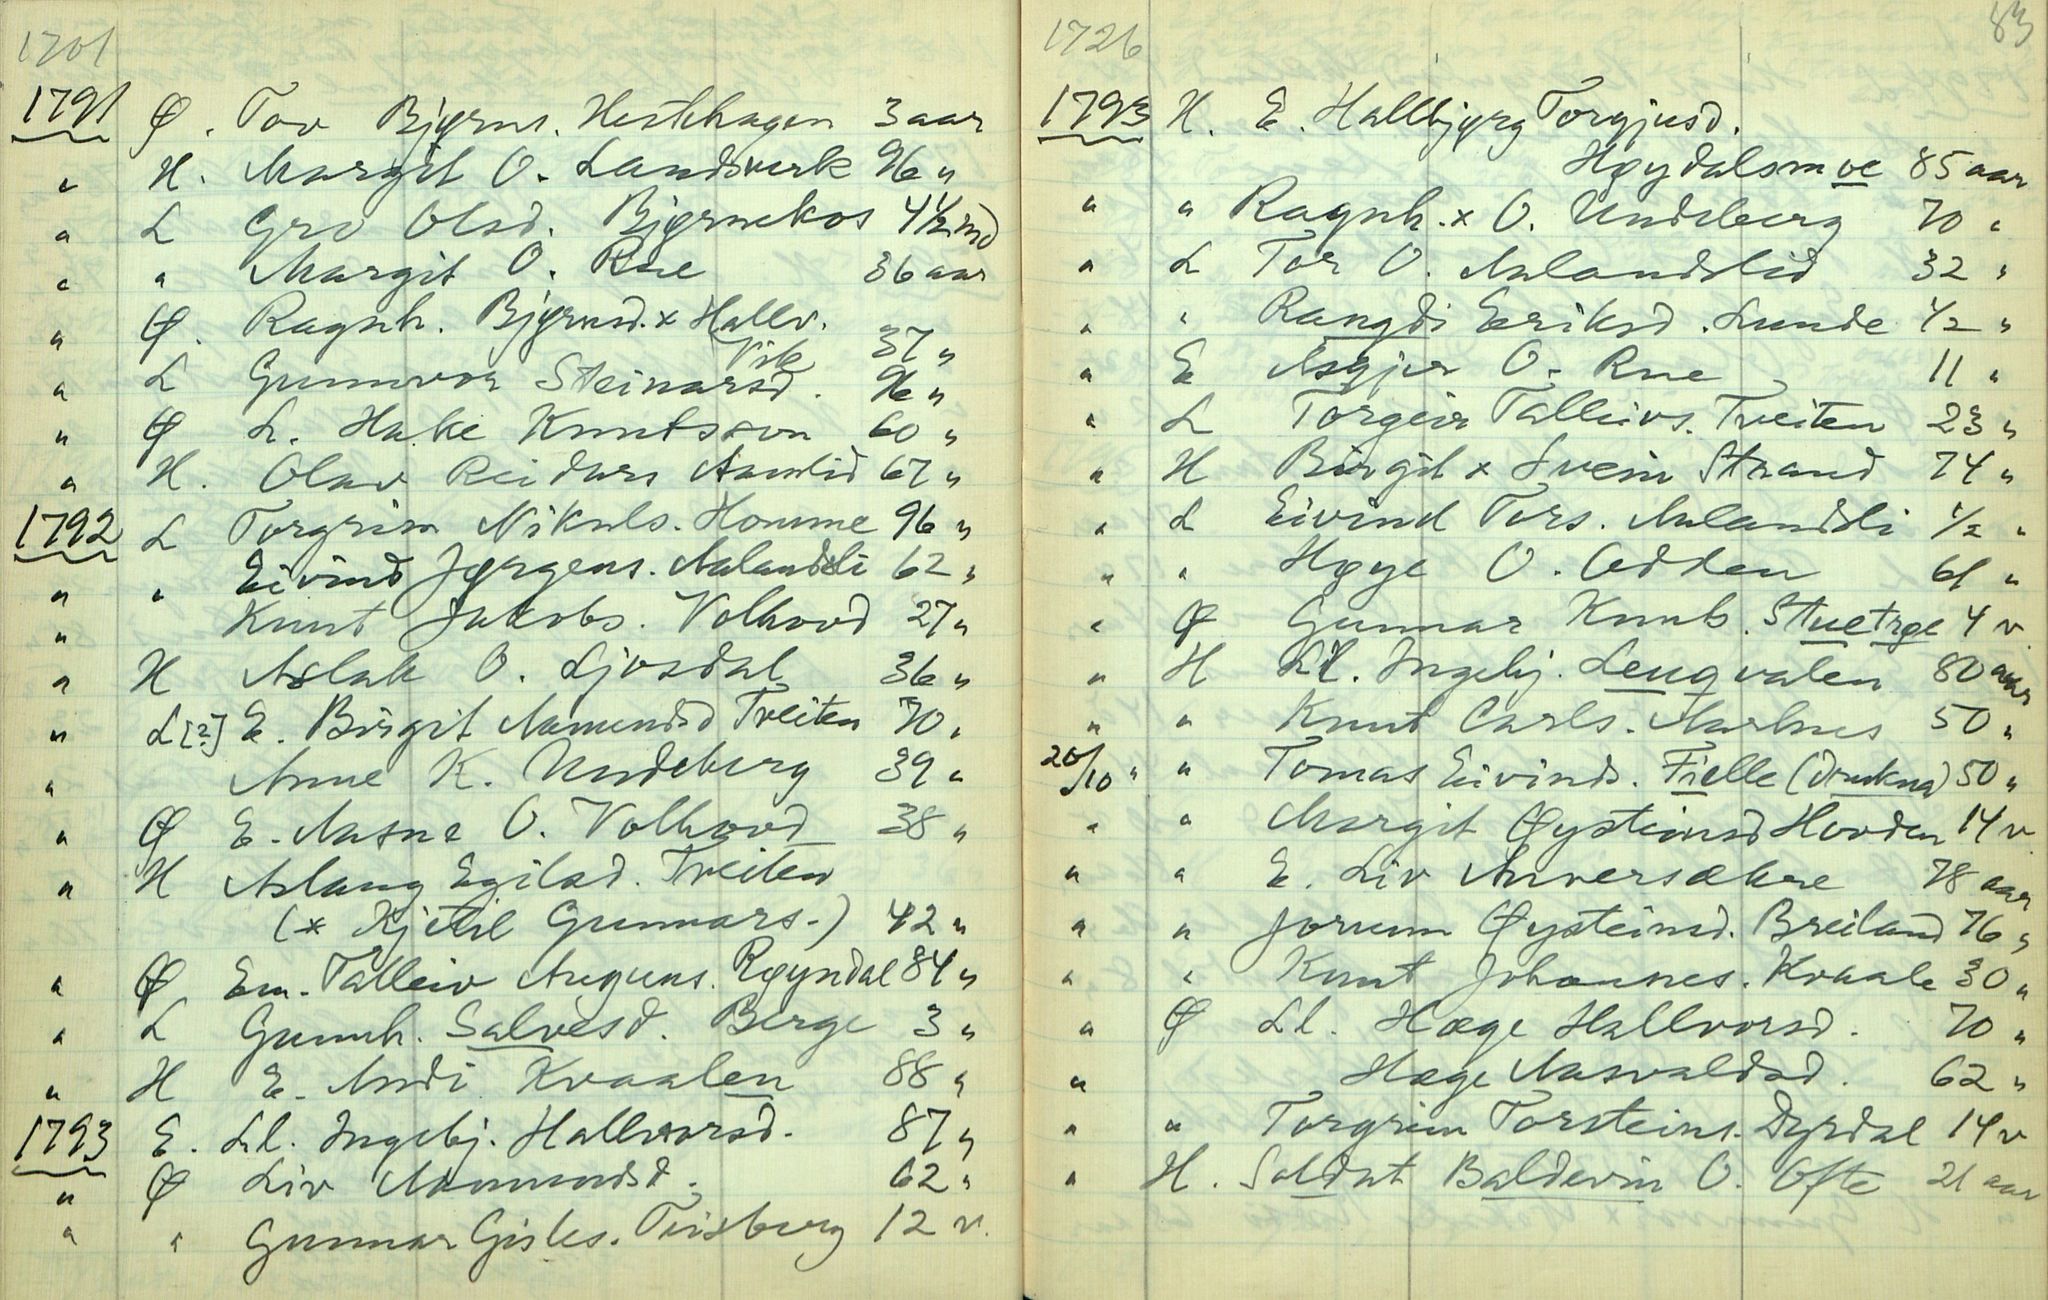 1701
1791 Ø. Tov Bjørns. Hestehagen 3 aar
" H. Margit O. Landsverk 96 "
" L Gro Olsd. Bjørnekos 4 1/2 md
" " Margit O. Rue 36 aar
" Ø. Ragnh. Bjørnsd. x Hallv.
Vik 37 "
" L Gunnvor Steinarsd. 96 "
" Ø L. Hake Knutsson 60 "
" H. Olav Reidars Aamlid 67 "
1792 L Torgrim Nikuls. Homme 96 "
" " Eivind Jørgens. Aalandsli 62 "
" Knut Jakobs. Volhovd 27 "
" H Aslak O. Ljosdal 36 "
" L [?] E. Birgit Aamundsd Tveiten 70 "
" Anne K. Undeberg 39 "
" Ø E. Aasne O. Volhovd 38 "
" H Aslaug Egilsd. Tveiten
(x Kjetil Gunnars.) 42 "
" Ø Em. Talleiv Auguns. Røyndal 84 "
" L Gunnh. Salvesd. Berge 3 "
" H E. Andi Kvaalen 88 "
1793 E. Ll. Ingebj. Hallvorsd. 87 "
" Ø Liv Aamundsd. 62 "
" " Gunnar Gisles. Tveitberg 12 v.
1726 83
1793 H. E. Hallbjørg Torgjusd.
Høydalsmoe 85 aar
" " Ragnh. x O. Undeberg 70 "
" L Tor O. Aalandslid 32 "
" " Rangdi Eeriksd. Lunde 1/2 "
" E Asgjer O. Rue 11 "
" L Torgeir Talleivs. Tveiten 23 "
" H Birgit x Svein Strand 74 "
" L Eivind Tors. Aalandsli 1/2 "
" " Høye O. Odden 61 "
" Ø Gunnar Knuts. Stuetrøe 4 v
" H Ll. Ingebj. Leuqvalen 80 aar
" " Knut Carls. Aarhus 50 "
20/10 " " Tomas Eivinds. Fielle (drukna) 50 "
" " Margit Øysteinsd Hovden 14 v.
" " E. Liv Anversækre 78 aar
" " Jorunn Øysteinsd. Breiland 76 "
" " Knut Johannes. Kvaale 30 "
" Ø Ll. Hæge Hallvorsd. 70 "
" Hæge Aasvaldsd. 62 "
" " Torgrim Torsteins. Dyrdal 14 v
" H. Soldat Baldevin O. Ofte 21 aar